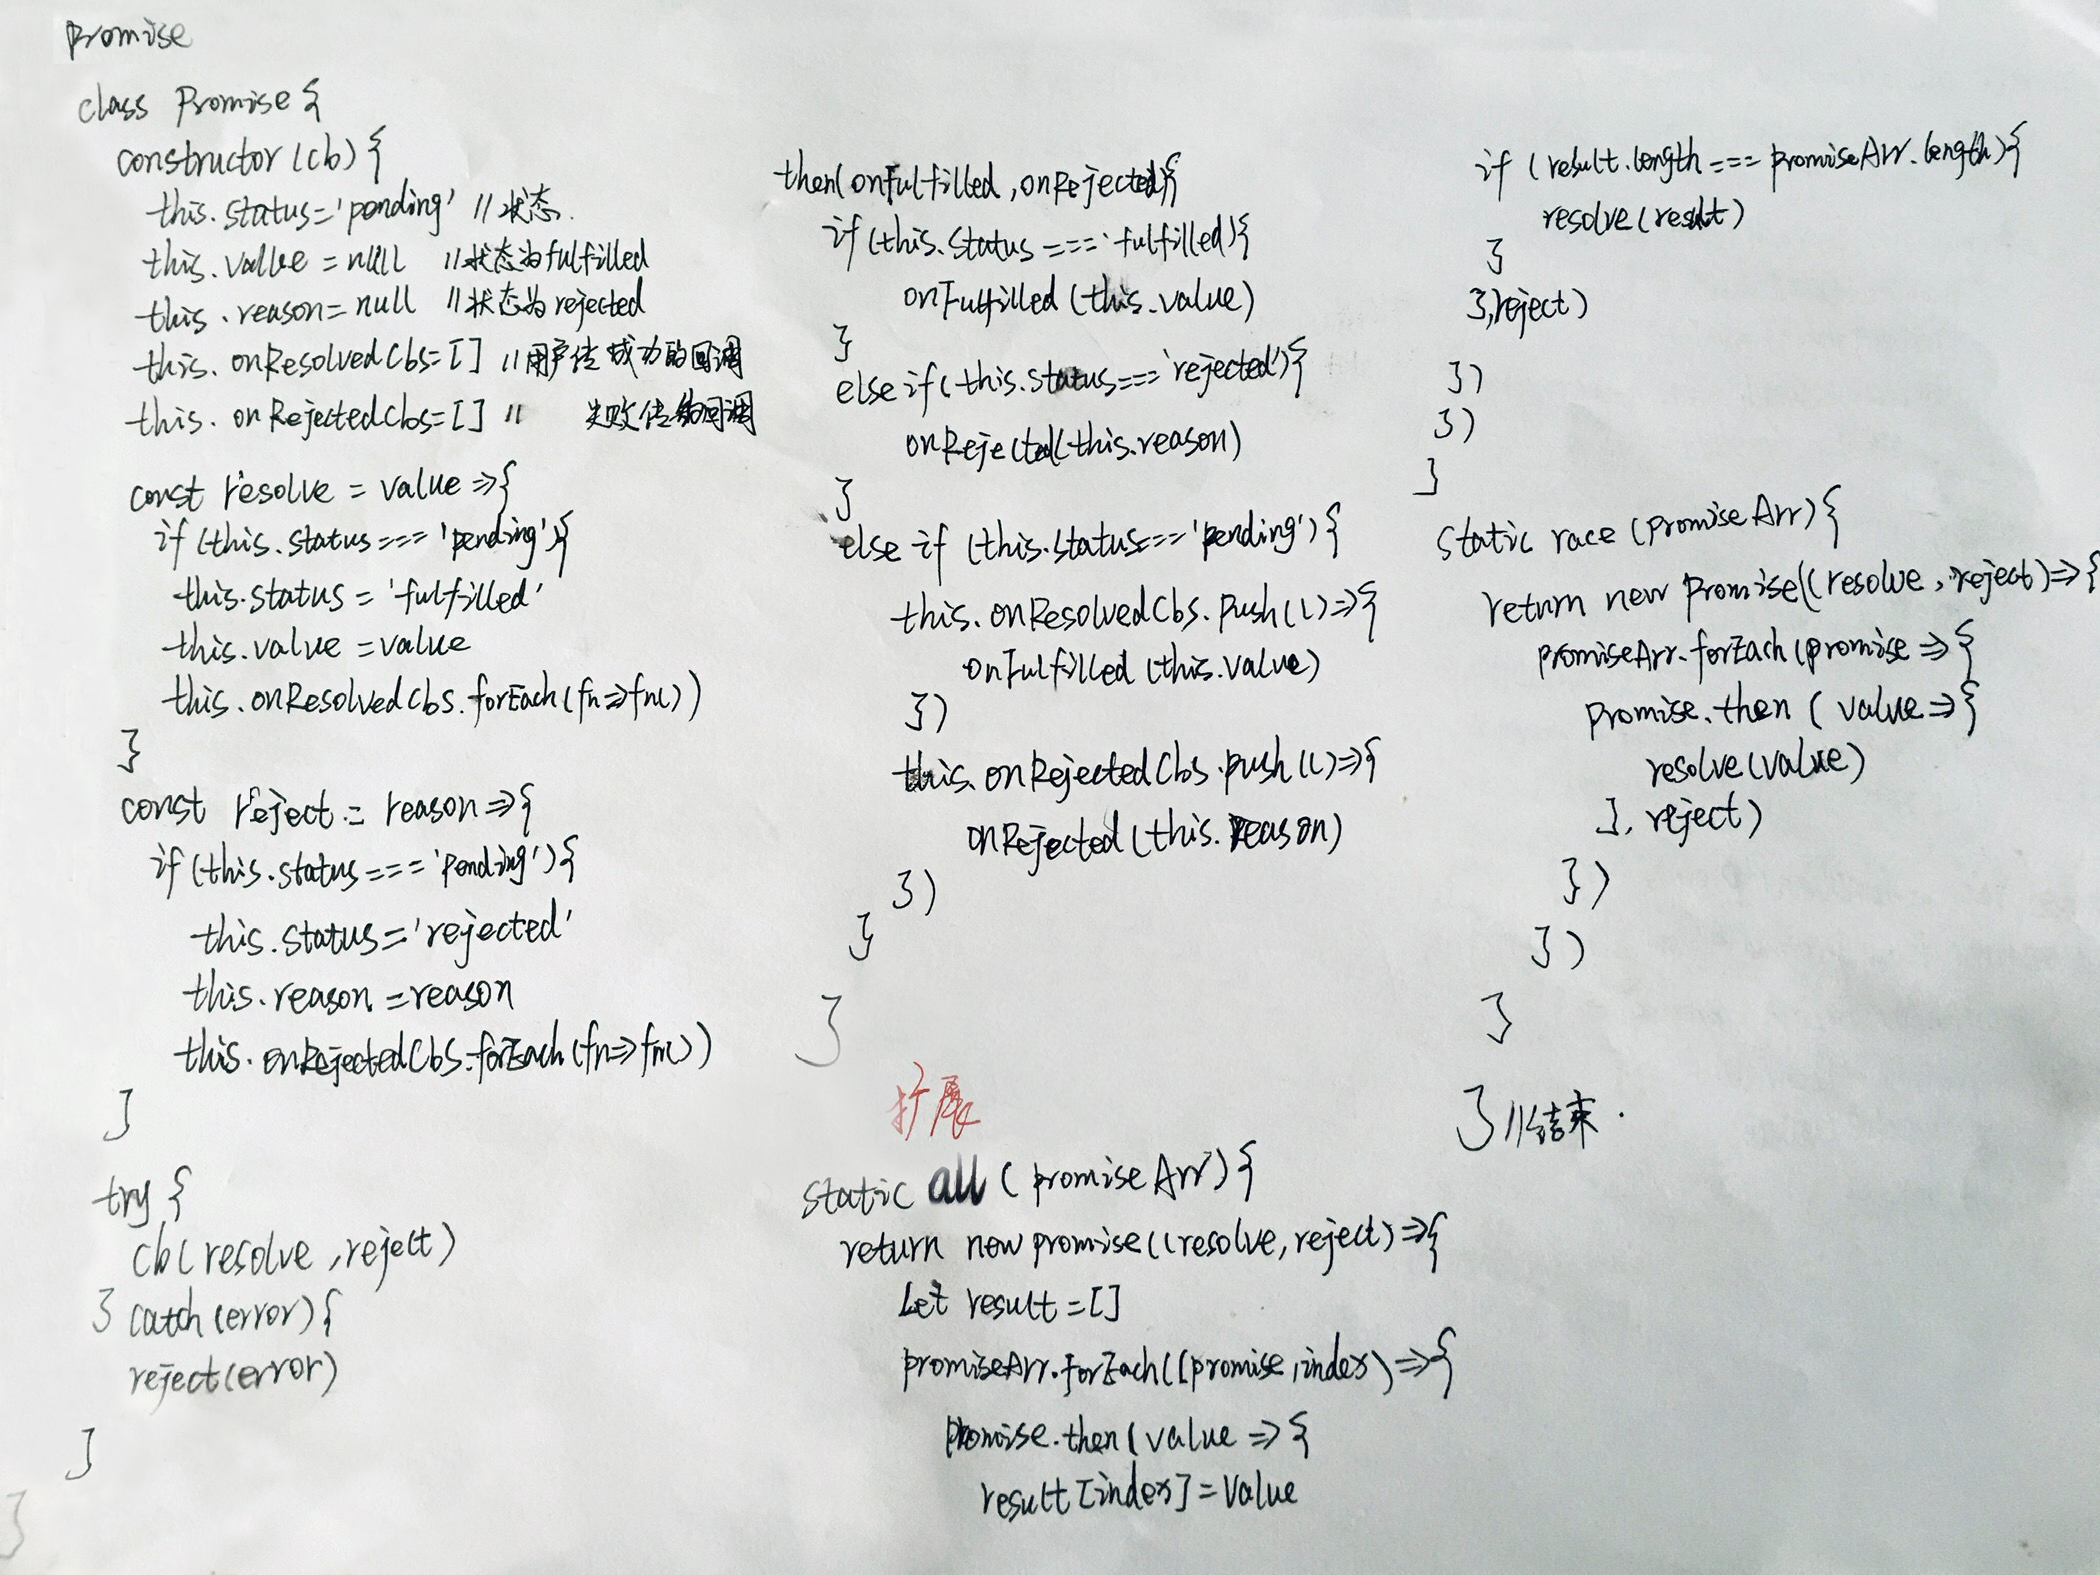 Promise
class Promise {
constructor (cb) {
this.status='pending' //状态.
this.value = null //状态为fulfilled
this.reason=null //状态为rejected
this.onResolvedCbs=[] //用户传成功的回调
this.onRejectedCbs=[] // 失败传的回调
const resolve = value =>{
if (this.status === 'pending'){
this.status = 'fulfilled'
this.value = value
this.onResolvedCbs.forEach(fn=>fn())
}
const reject = reason =>{
if (this.status === 'pending'){
this.status='rejected'
this.reason = reason
this.onRejectedCbs.forEach(fn=>fn())
}
try {
cb( resolve , reject)
} catch (error) {
reject(error)
}
}
then(onFulfilled ,onRejected){
if (this.status === 'fulfilled){
onFulfilled (this.value)
}
else if (this.status === 'rejected'){
onRejected(this.reason)
}
else if (this.status=== 'pending') {
this.onResolvedCbs.push(()=>{
onFulfilled (this.value)
})
this.onRejectedCbs.push(()=>{
onRejected (this.reason)
})
}
}
扩展
static all ( promiseArr) {
return new promise((resolve, reject) =>{
Let result =[]
promiseArr.forEach((promise ,index) =>{
promise.then( value => {
result [index] = value
if (result.length === promiseArr.length){
resolve (result)
}
},reject)
})
})
}
static race (promiseArr) {
return new Promise((resolve , reject)=>{
promiseArr.forEach (promise =>{
promise.then ( value =>{
resolve (value)
}, reject)
})
})
}
} //结束.